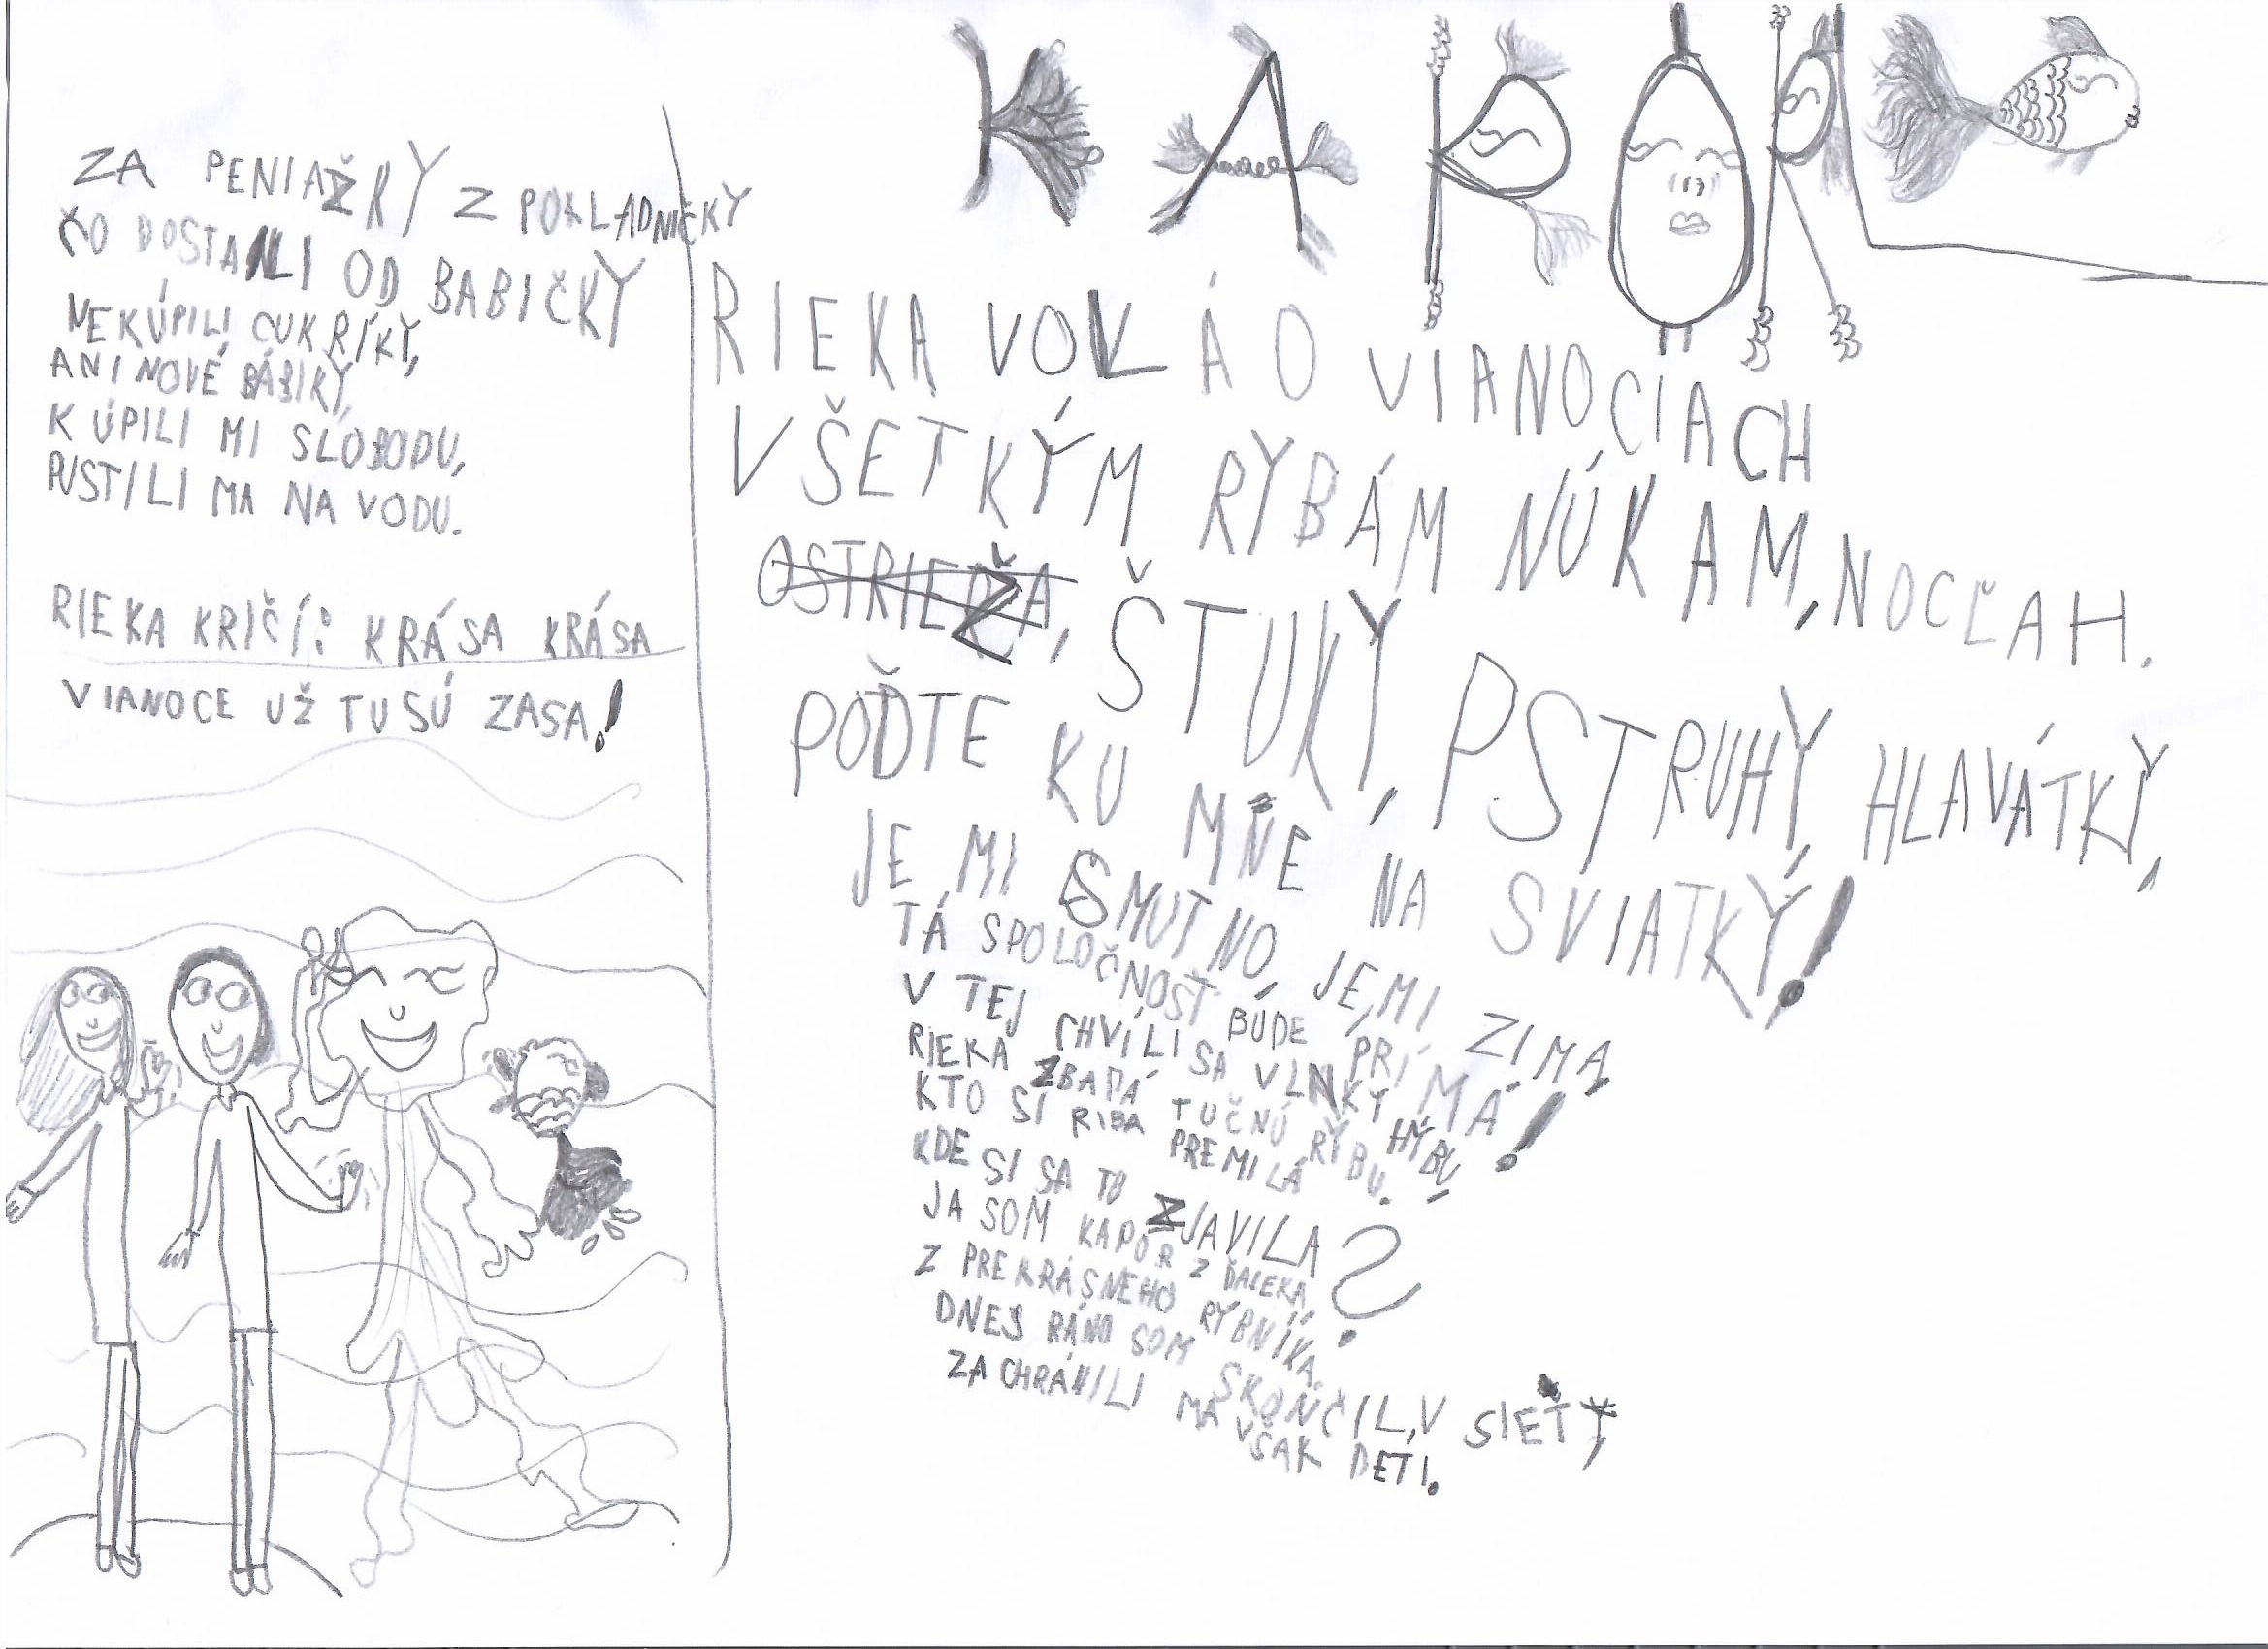 KAPOR
RIEKA VOLÁ O VIANOCIACH
VŠETKÝM RYBÁM NÚKAM, NOCĽAH.
OSTRIEŽA, ŠTUKY, PSTRUHY, HLAVÁTKY,
POĎTE KU MŇE NA SVIATKY!
JE MI SMUTNO, JE MI ZIMA,
TÁ SPOLOČNOSŤ BUDE PRÍMÁ!
V TEJ CHVÍLI SA VLNKY HÝBU,
RIEKA ZBADÁ TUČNÚ RYBU.
KTO SI RIBA PREMILÁ
KDE SI SA TU ZJAVILA?
JA SOM KAPOR Z ĎALEKA,
Z PREKRÁSNEHO RYBNÍKA.
DNES RÁNO SOM SKONČIL, V SIETI,
ZACHRÁNILI MA VŠAK DETI.
ZA PENIAŽKY Z POKLADNIČKY
ČO DOSTALI OD BABIČKY
NEKÚPILI CUKRÍKY,
ANI NOVÉ BÁBIKY,
KÚPILI MI SLOBODU,
PUSTILI MA NA VODU.
RIEKA KRIČÍ: KRÁSA KRÁSA
VIANOCE UŽ TU SÚ ZASA!